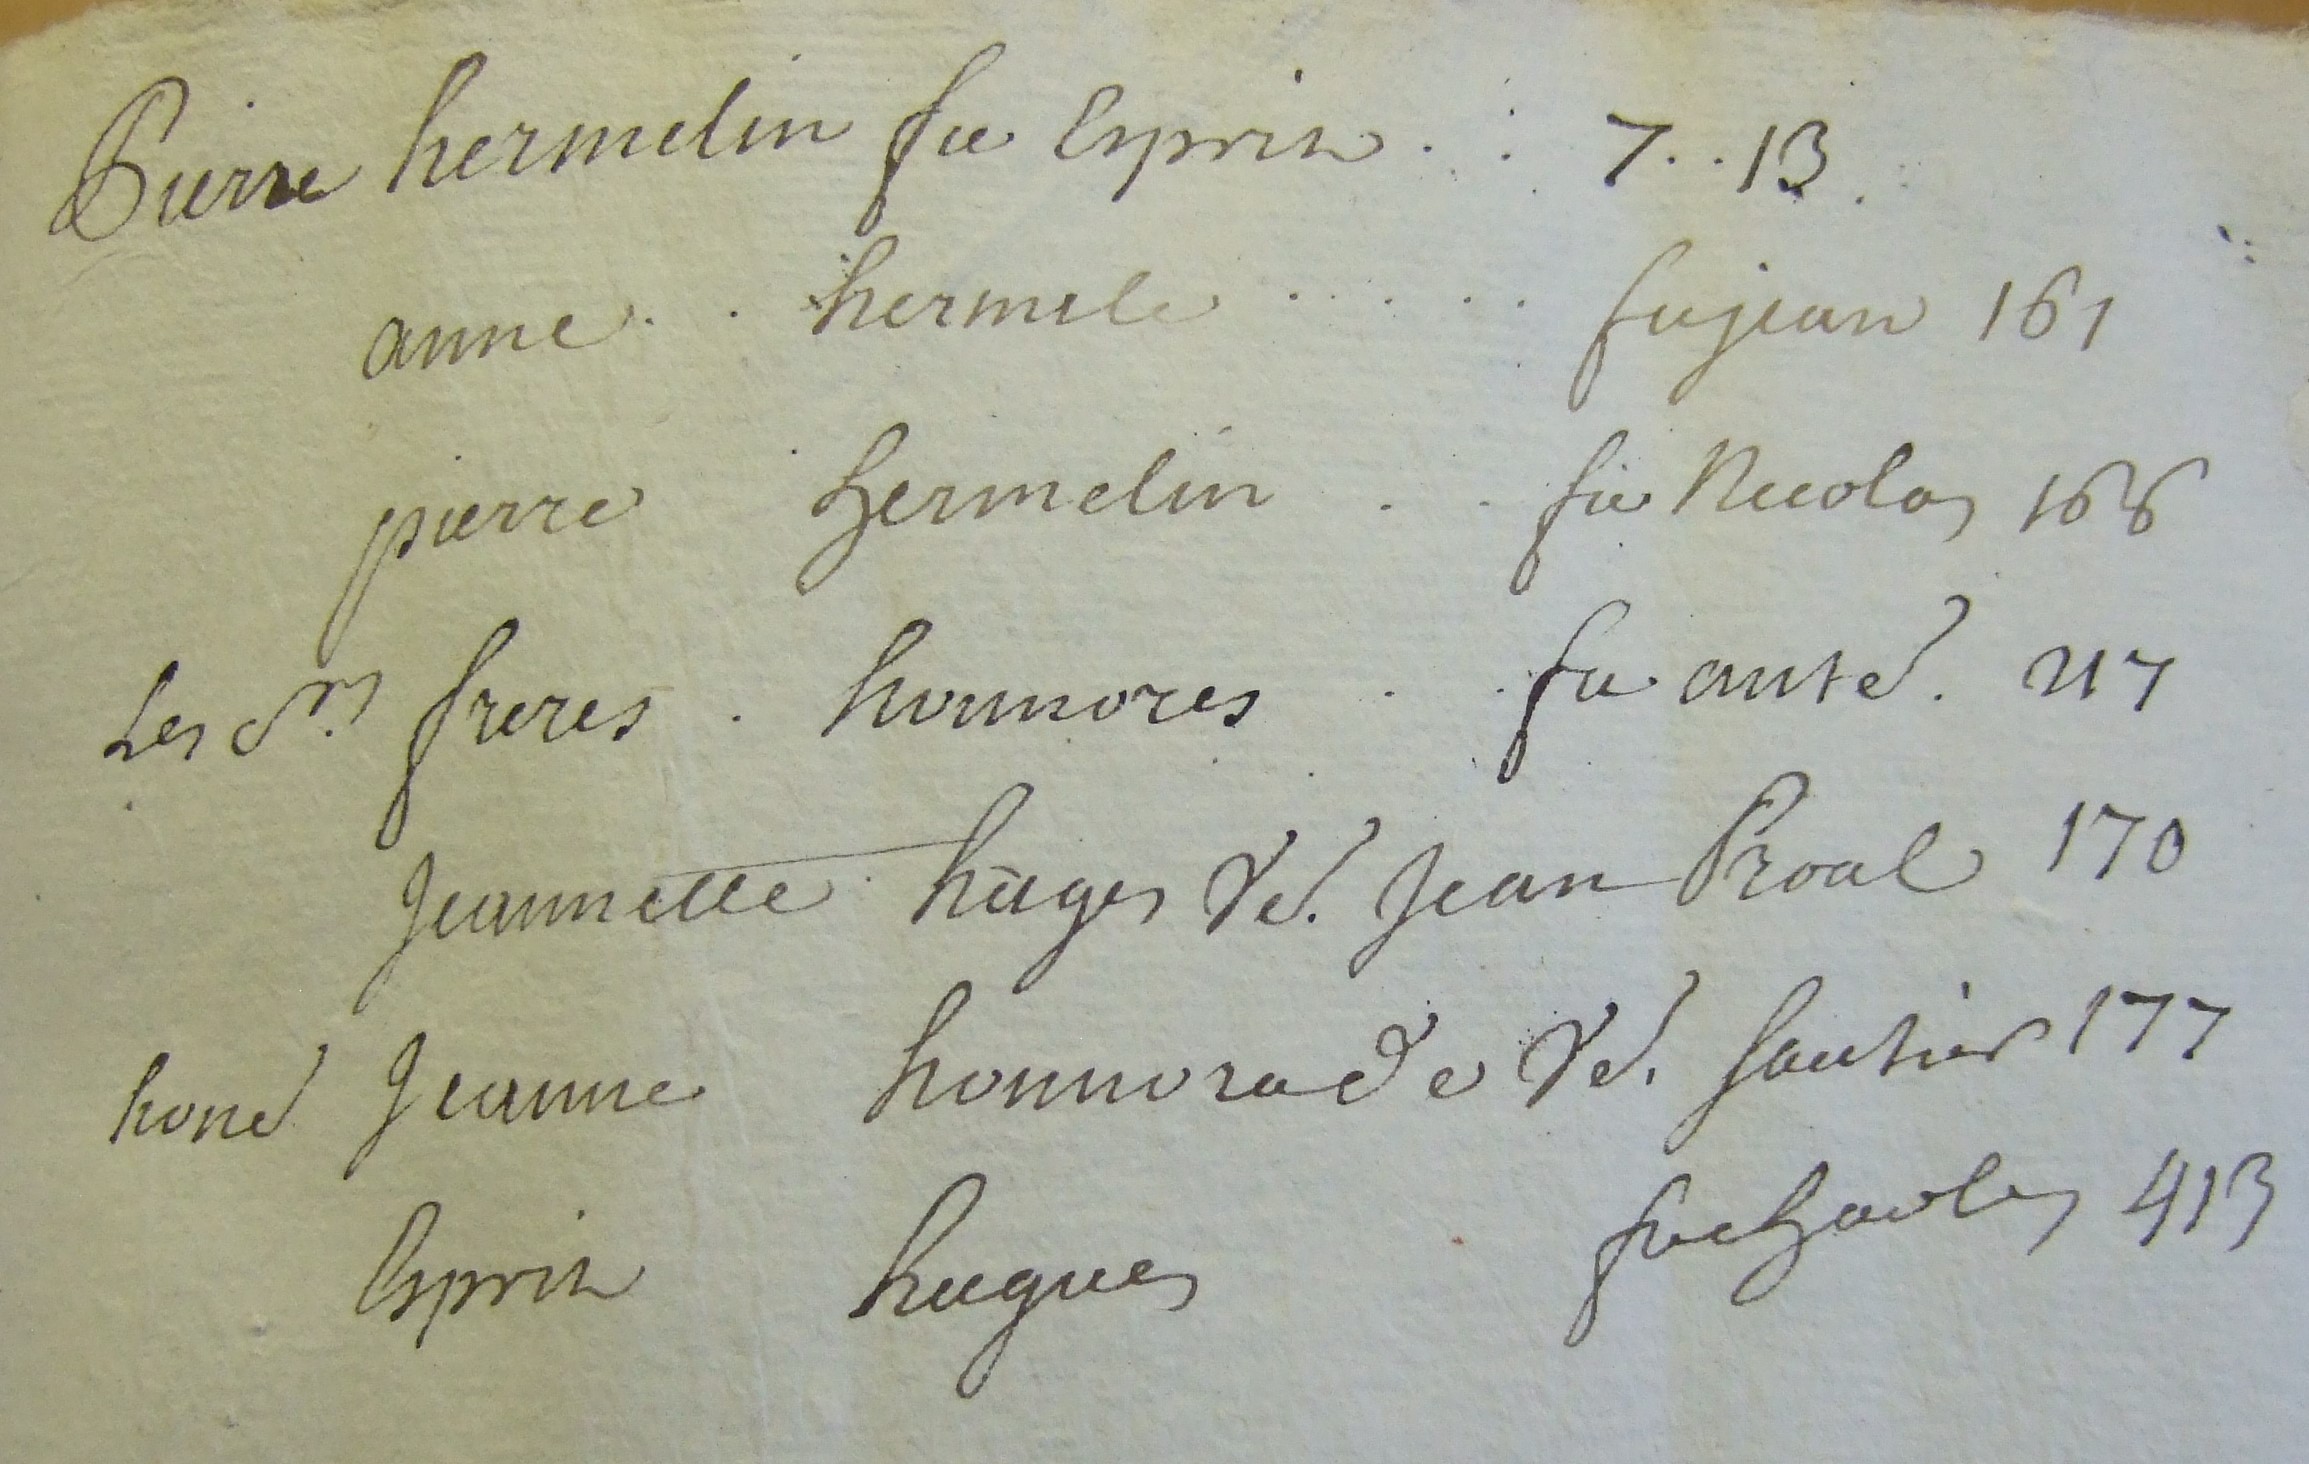 Pierre hermelin fu Esprit . . 7 . . 13 .
anne . . hermele . . . . . fu jean 161
pierre hermelin . . fu Nicolas 166
Les Srs freres . honnores . . fu anted. 217
Jeannette hùges Ved. Jean Proal 170
honed Jeanne honnorade Ved. Sautier 177
Esprit hugues fu charles 413